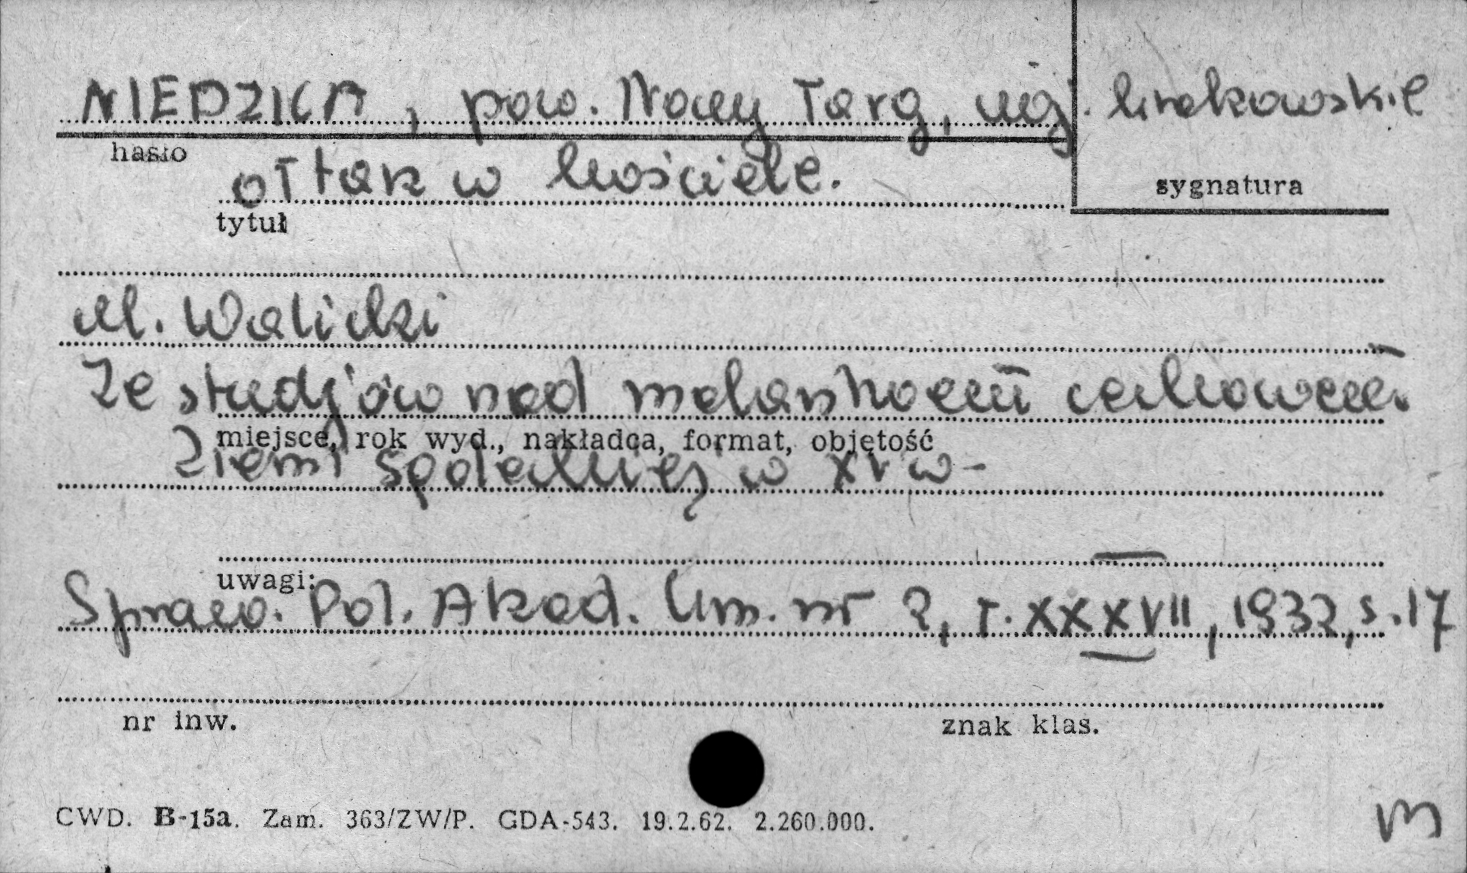 NIEDZICA, pow. Nowy Targ, woj. krakowskie
hasło
ołtarz w kościele.
sygnatura
tytuł
M. Walicki
Ze studjów nad malarstwem cechowem
miejsce, rok wyd., nakładca, format, objętość
Ziemi Spolskiej w XV w-
uwagi:
Spraw. Pol. Akad. Um. nr 2, r. XXXVII, 1932, s. 17
nr inw.
znak klas.
CWD. B-15a. Zam. 363/ZW/P. GDA-543. 19.2.62. 2.260.000.
m